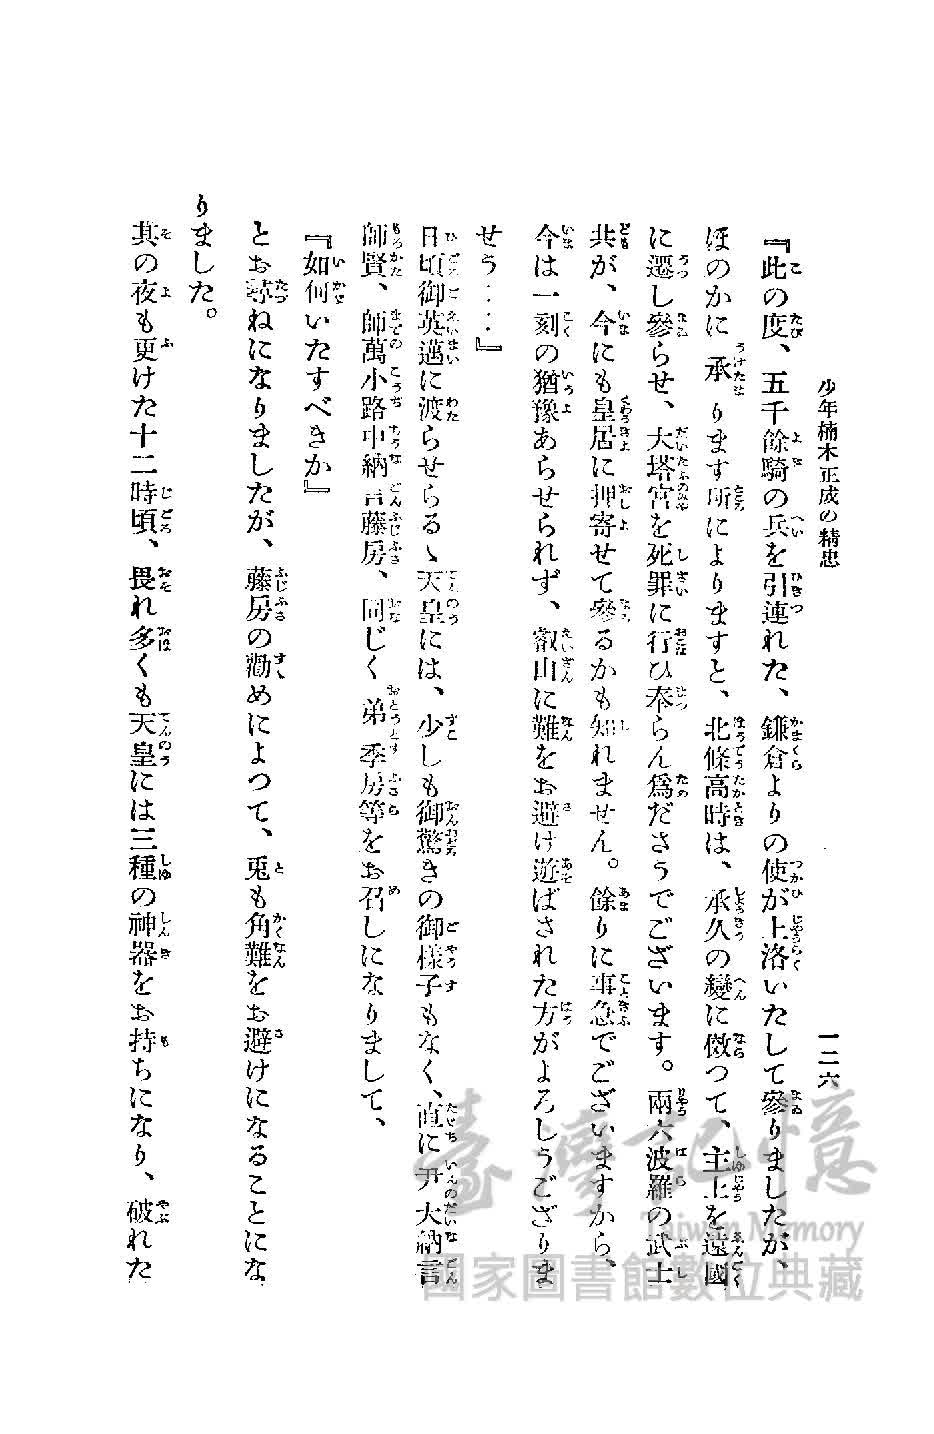 少年楠木正成の精忠
一二六
『此の度、五千餘騎の兵を引連れた、鎌倉よりの使が上洛いたして參りましたが、
ほのかに承ります所によりますと、北條高時は、承久の變に倣つて、主上を遠國
に遷し參らせ、大塔宮を死罪に行ひ奉らん爲ださうでございます。兩六波羅の武士
共が、今にも皇居に押寄せて參るかも知れません。餘りに事急でございますから、
今は一刻の猶豫あらせられず、叡山に難をお避け遊ばされた方がよろしうござりま
せう‥‥』
日頃御英邁に渡らせらるゝ天皇には、少しも御驚きの御樣子もなく、直に尹大納言
師賢、師萬小路中納言藤房、同じく弟季房等をお召しになりまして、
『如何いたすべきか』
とお尋ねになりましたが、藤房の勸めによつて、兎も角難をお避けになることにな
りました。
其の夜も更けた十二時頃、畏れ多くも天皇には三種の神器をお持ちになり、破れた
臺灣記憶
Taiwan Memory
國家圖書館數位典藏